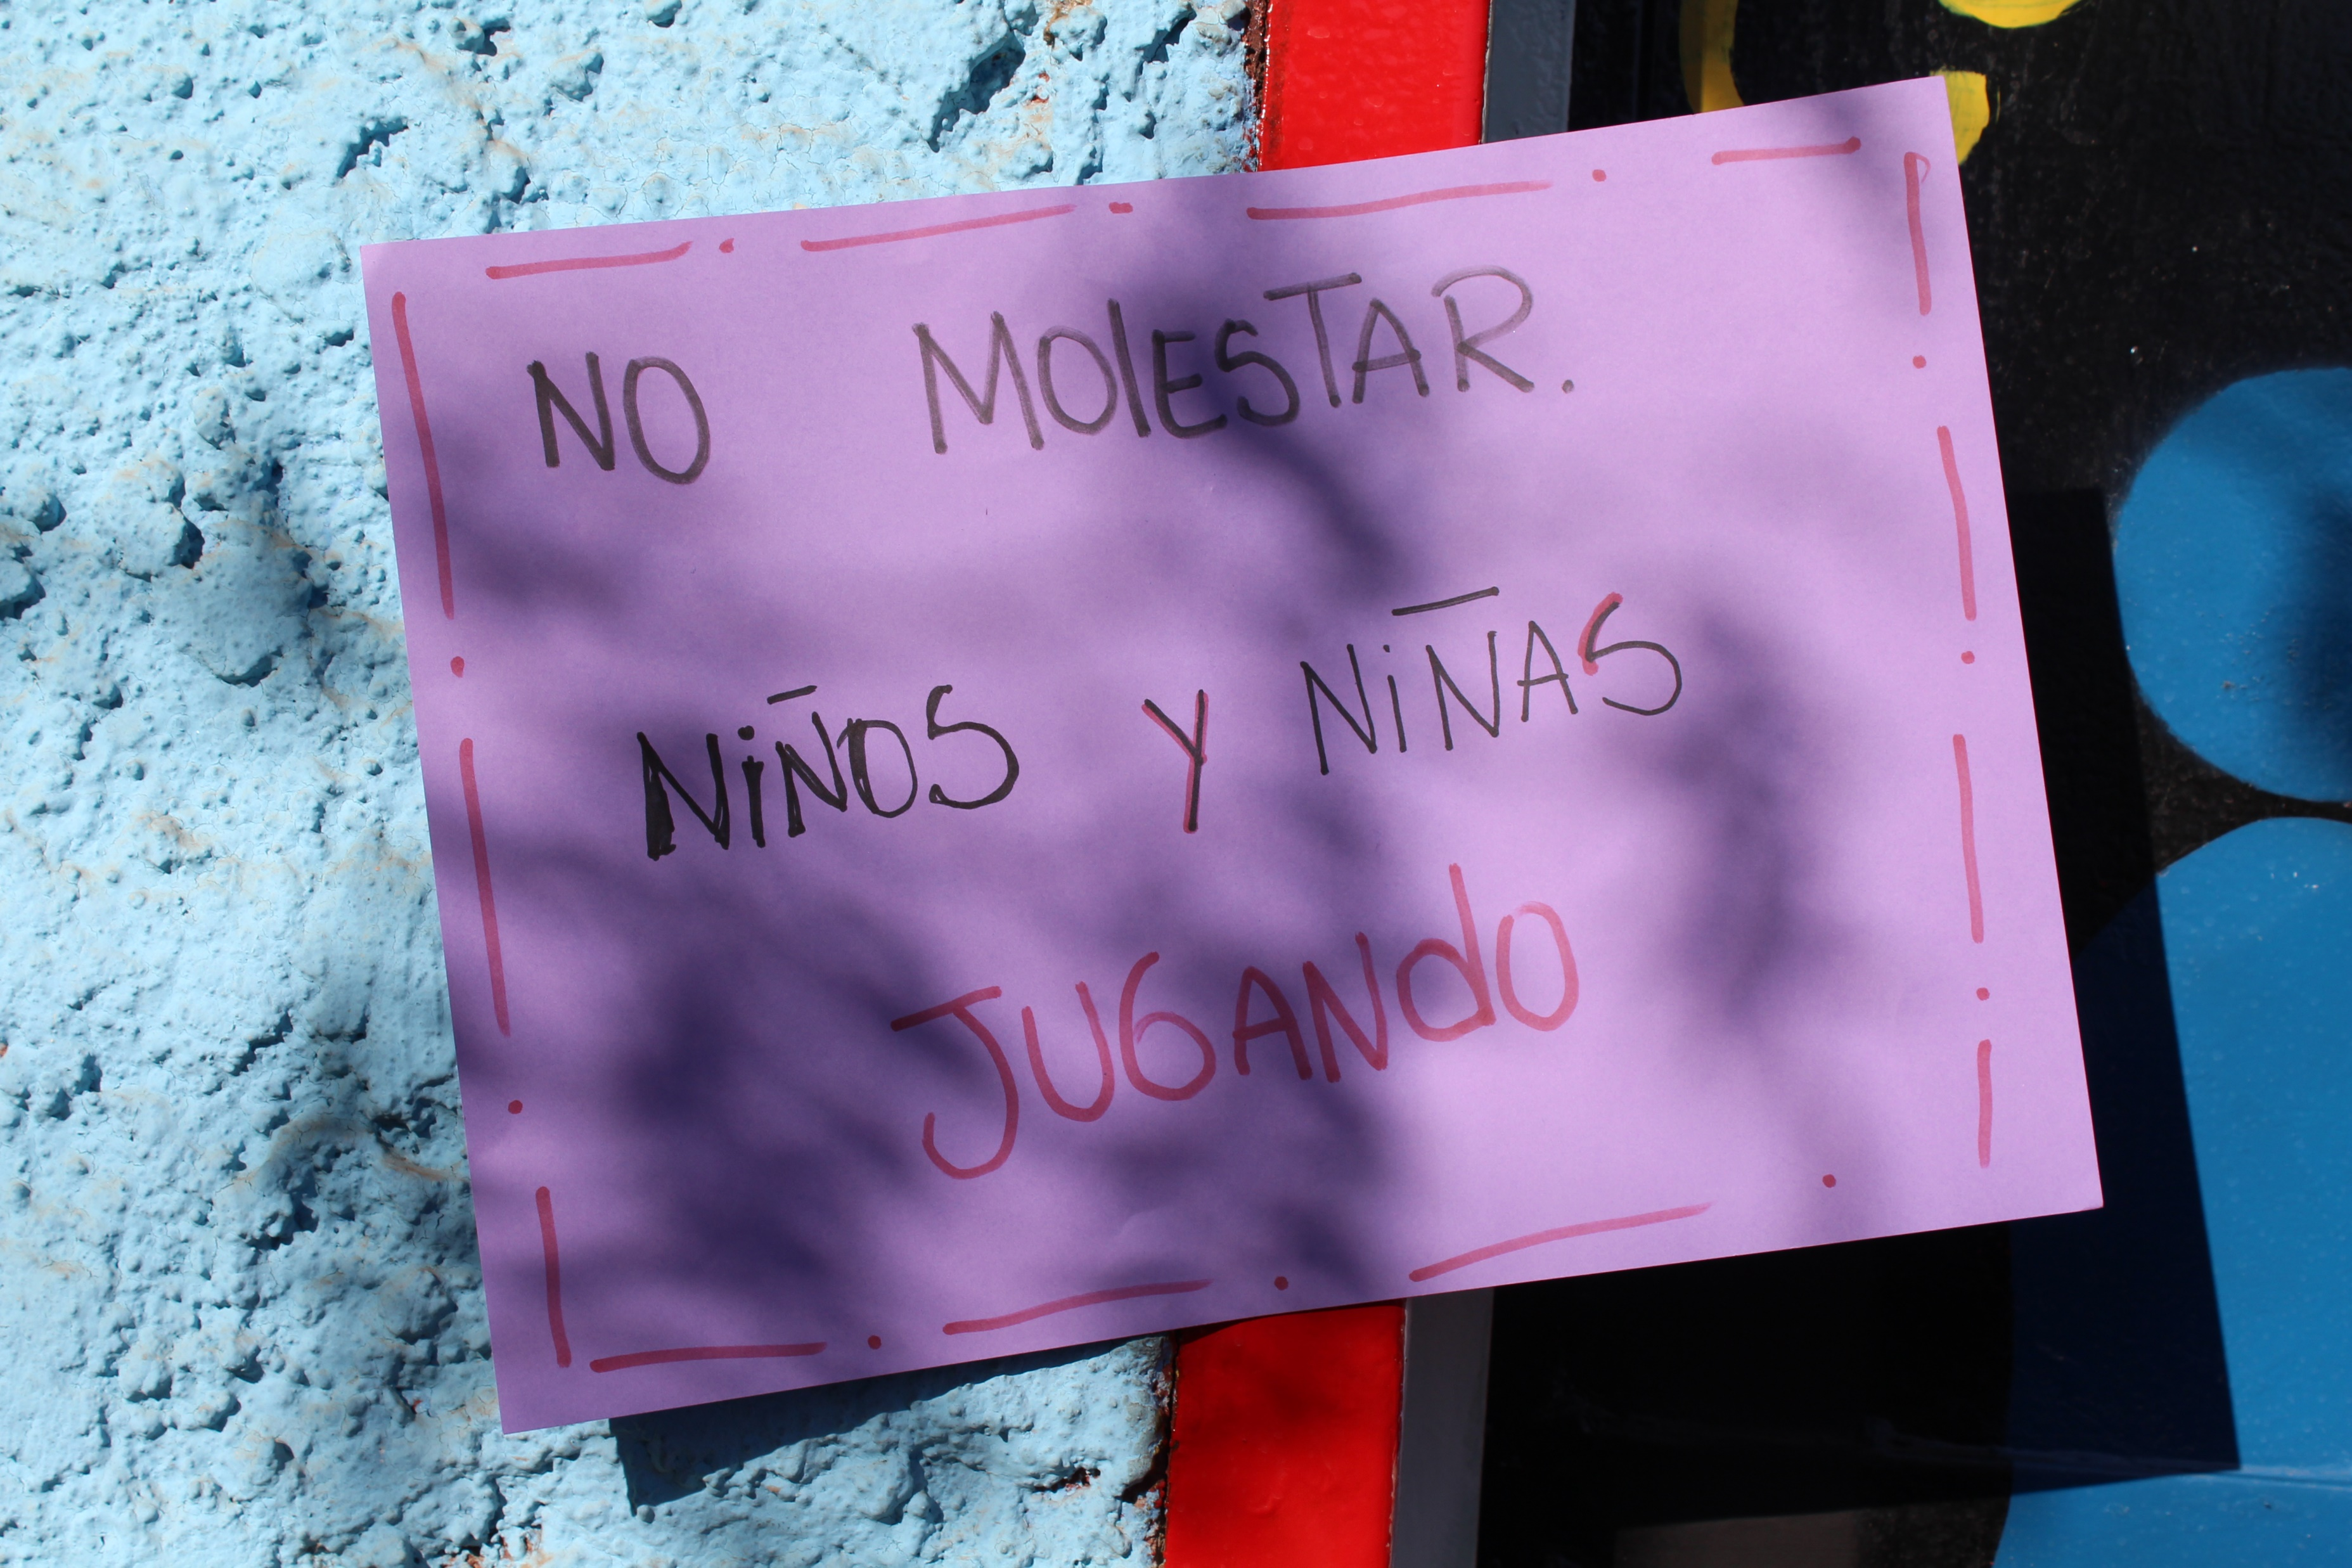 NO MOlESTAR.
NiÑOS Y NiÑAS
JUGANdO